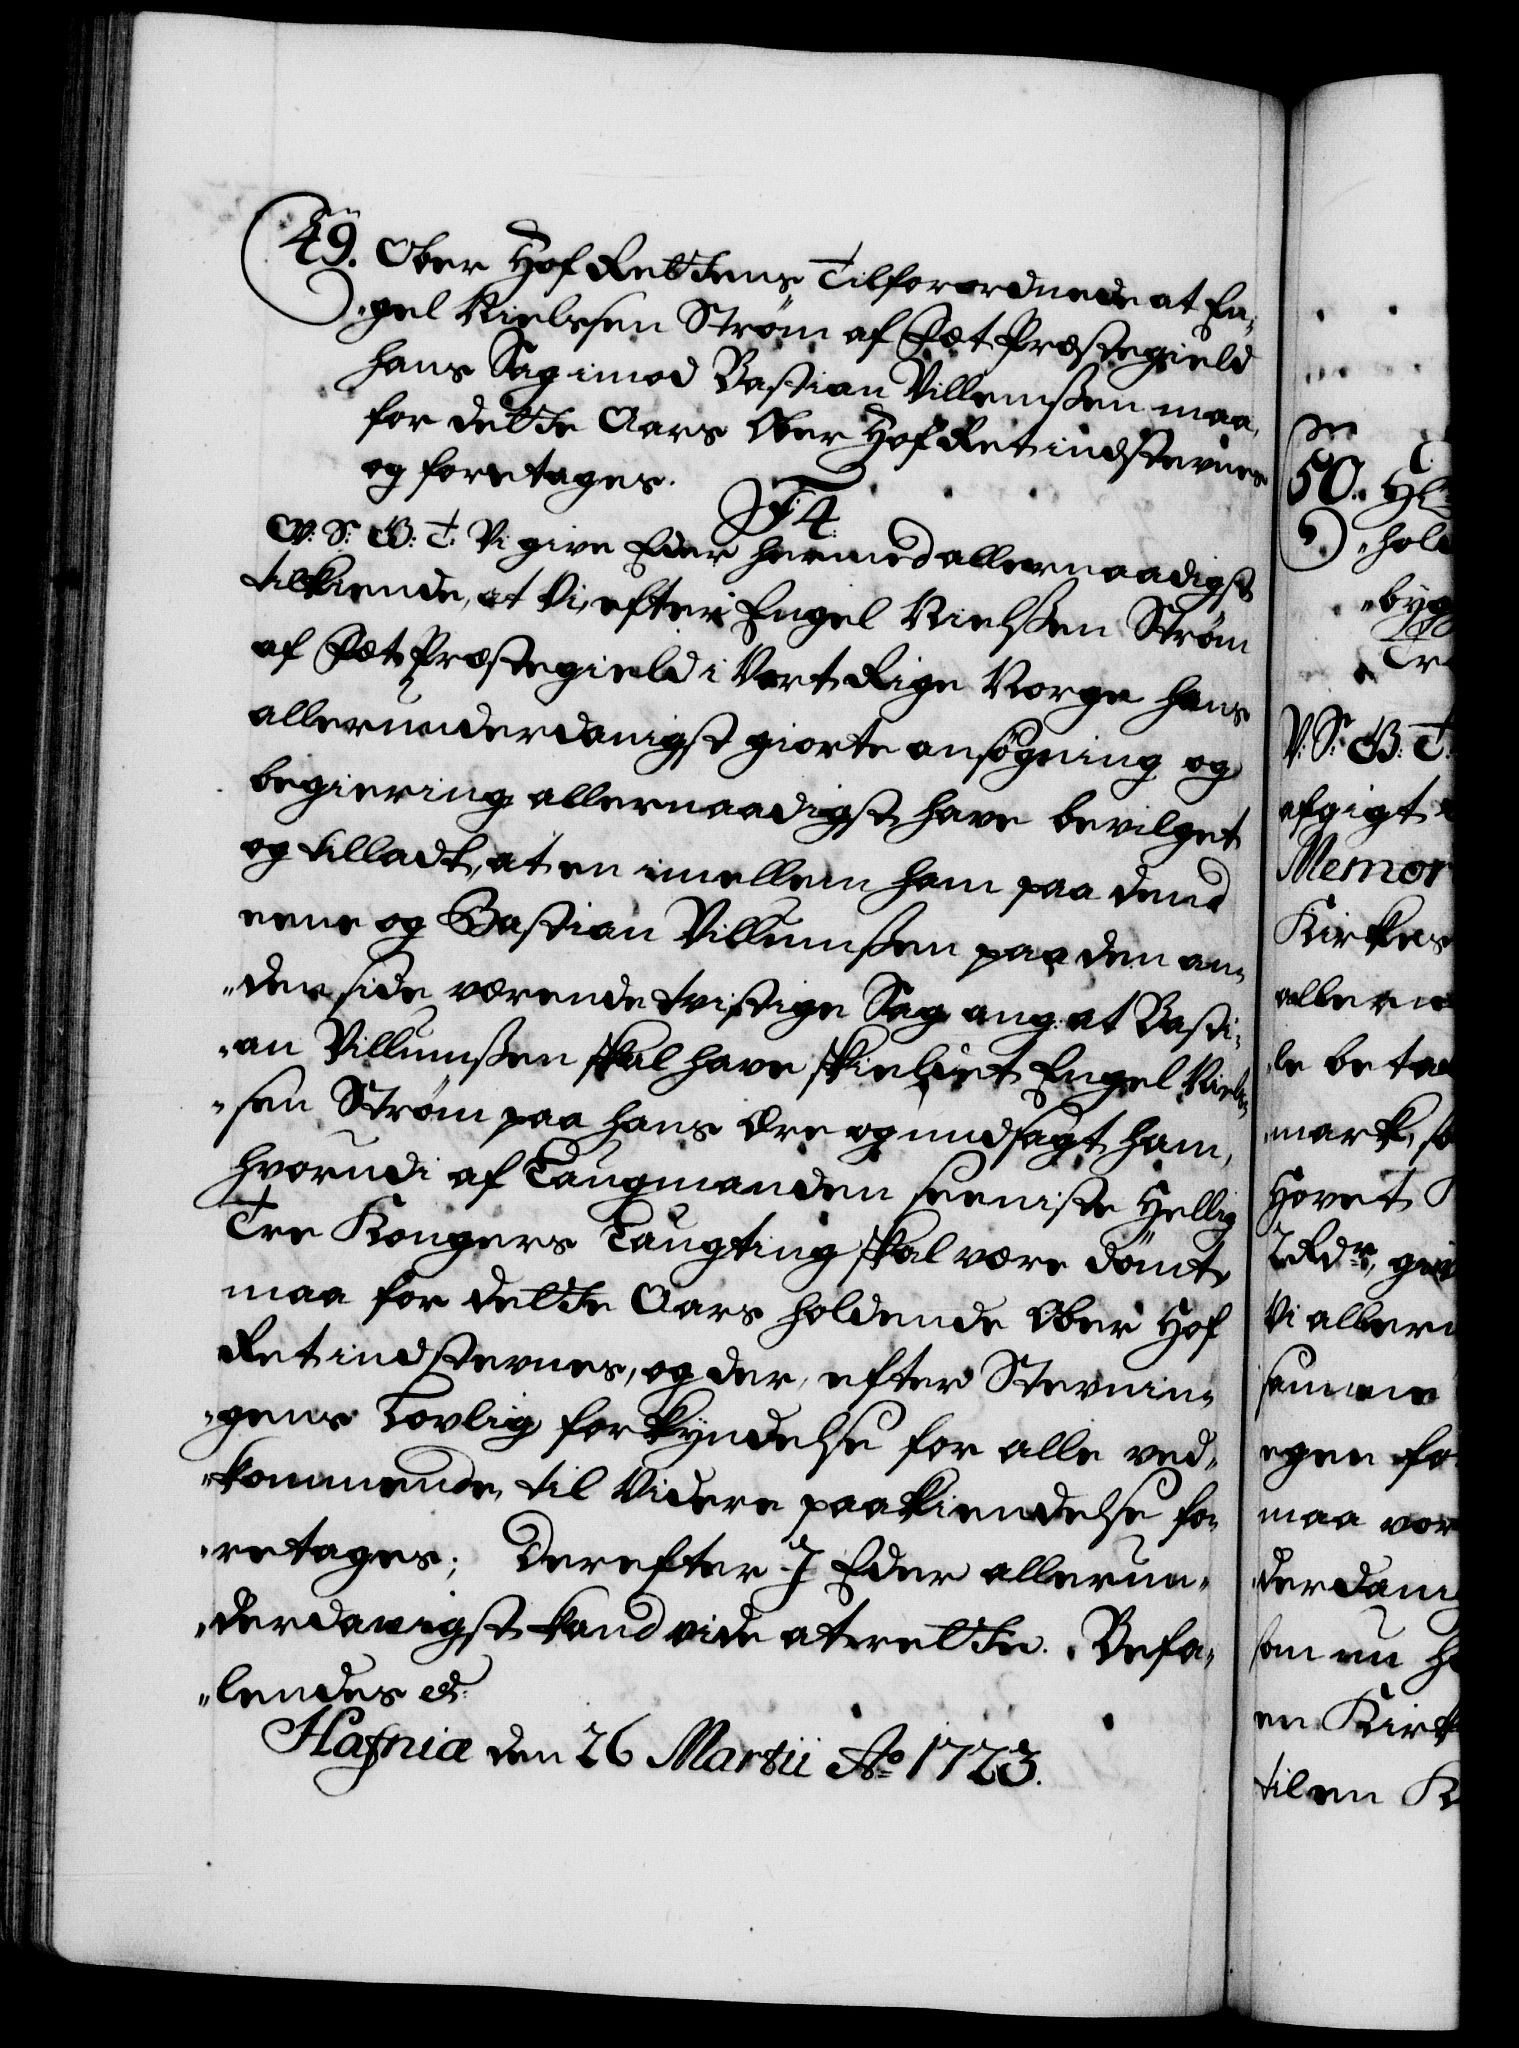 49. Ober Hof Rettens Tilforordnede at En-
"gel Nielssen Strøm af Sæt Præstegield
hans Sag imod Bastian Villemssen maa,
for dette Aars Ober Hof Ret indstevnes
og foretages.
F. 4.
V: S: G: T: Vi give Eder hermed allernaadigst
tilkiende, at Vi, efter Engel Nielssen Strøm
af Sæt Præstegield i Vort Rige Norge hans
allerunderdanigst giorte ansøgning og
begiering allernaadigst have bevilget
og tilladt, at en imellem ham paa dend
eene og Bastian Villumssen paa den an-
"den side værende tvistige Sag ang: at Basti-
"an Villumssen skal have skieldet Engel Niels-
"sen Strøm paa hans Ære og undsagt ham,
hvorudi af Laugmanden seeniste Hellig
Tre Kongers Laugting skal være dömt,
maa for dette Aars holdende Ober Hof
Ret indstevnes, og der, efter Stevnin-
"gens Lovlig forkyndelse for alle ved-
"kommende, til Videre paakiendelse fo-
"retages; Derefter I Eder allerun-
"derdanigst kand vide at rette. Befa-
"lendes etc:
Hafniæ den 26 Martii Ao 1723.
50.
"hol
"byg
Tr
V: S: G: T:
afgigt
Memor
Kirkes
allern
le beta
"mark, so
Hovet
Vi allern
samme
egen fo
maa vor
derdani
som nu h
en Kirk
til en K